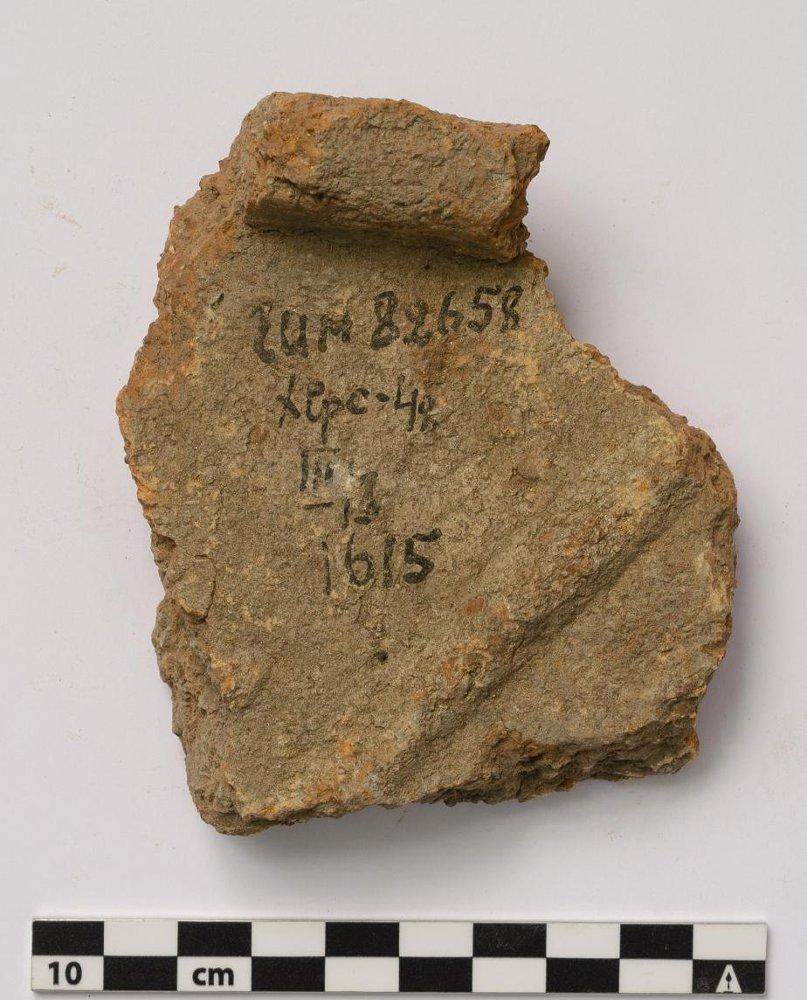 гим 82658
Херс-48
III
-13
1615
10 cm
A